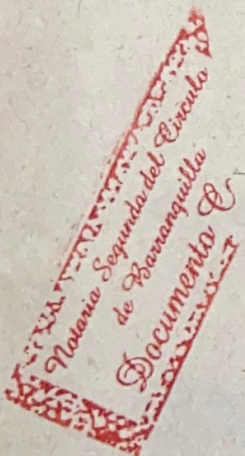 Notaria Segunda del Circulo
de Barranquilla
Documento E